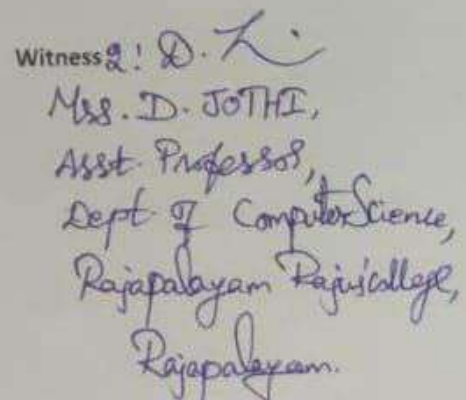 Witness 2: D.
Mrs. D. JOTHI,
Asst. Professor,
Dept. of Computer Science,
Rajapalayam Rajus' college,
Rajapalayam.